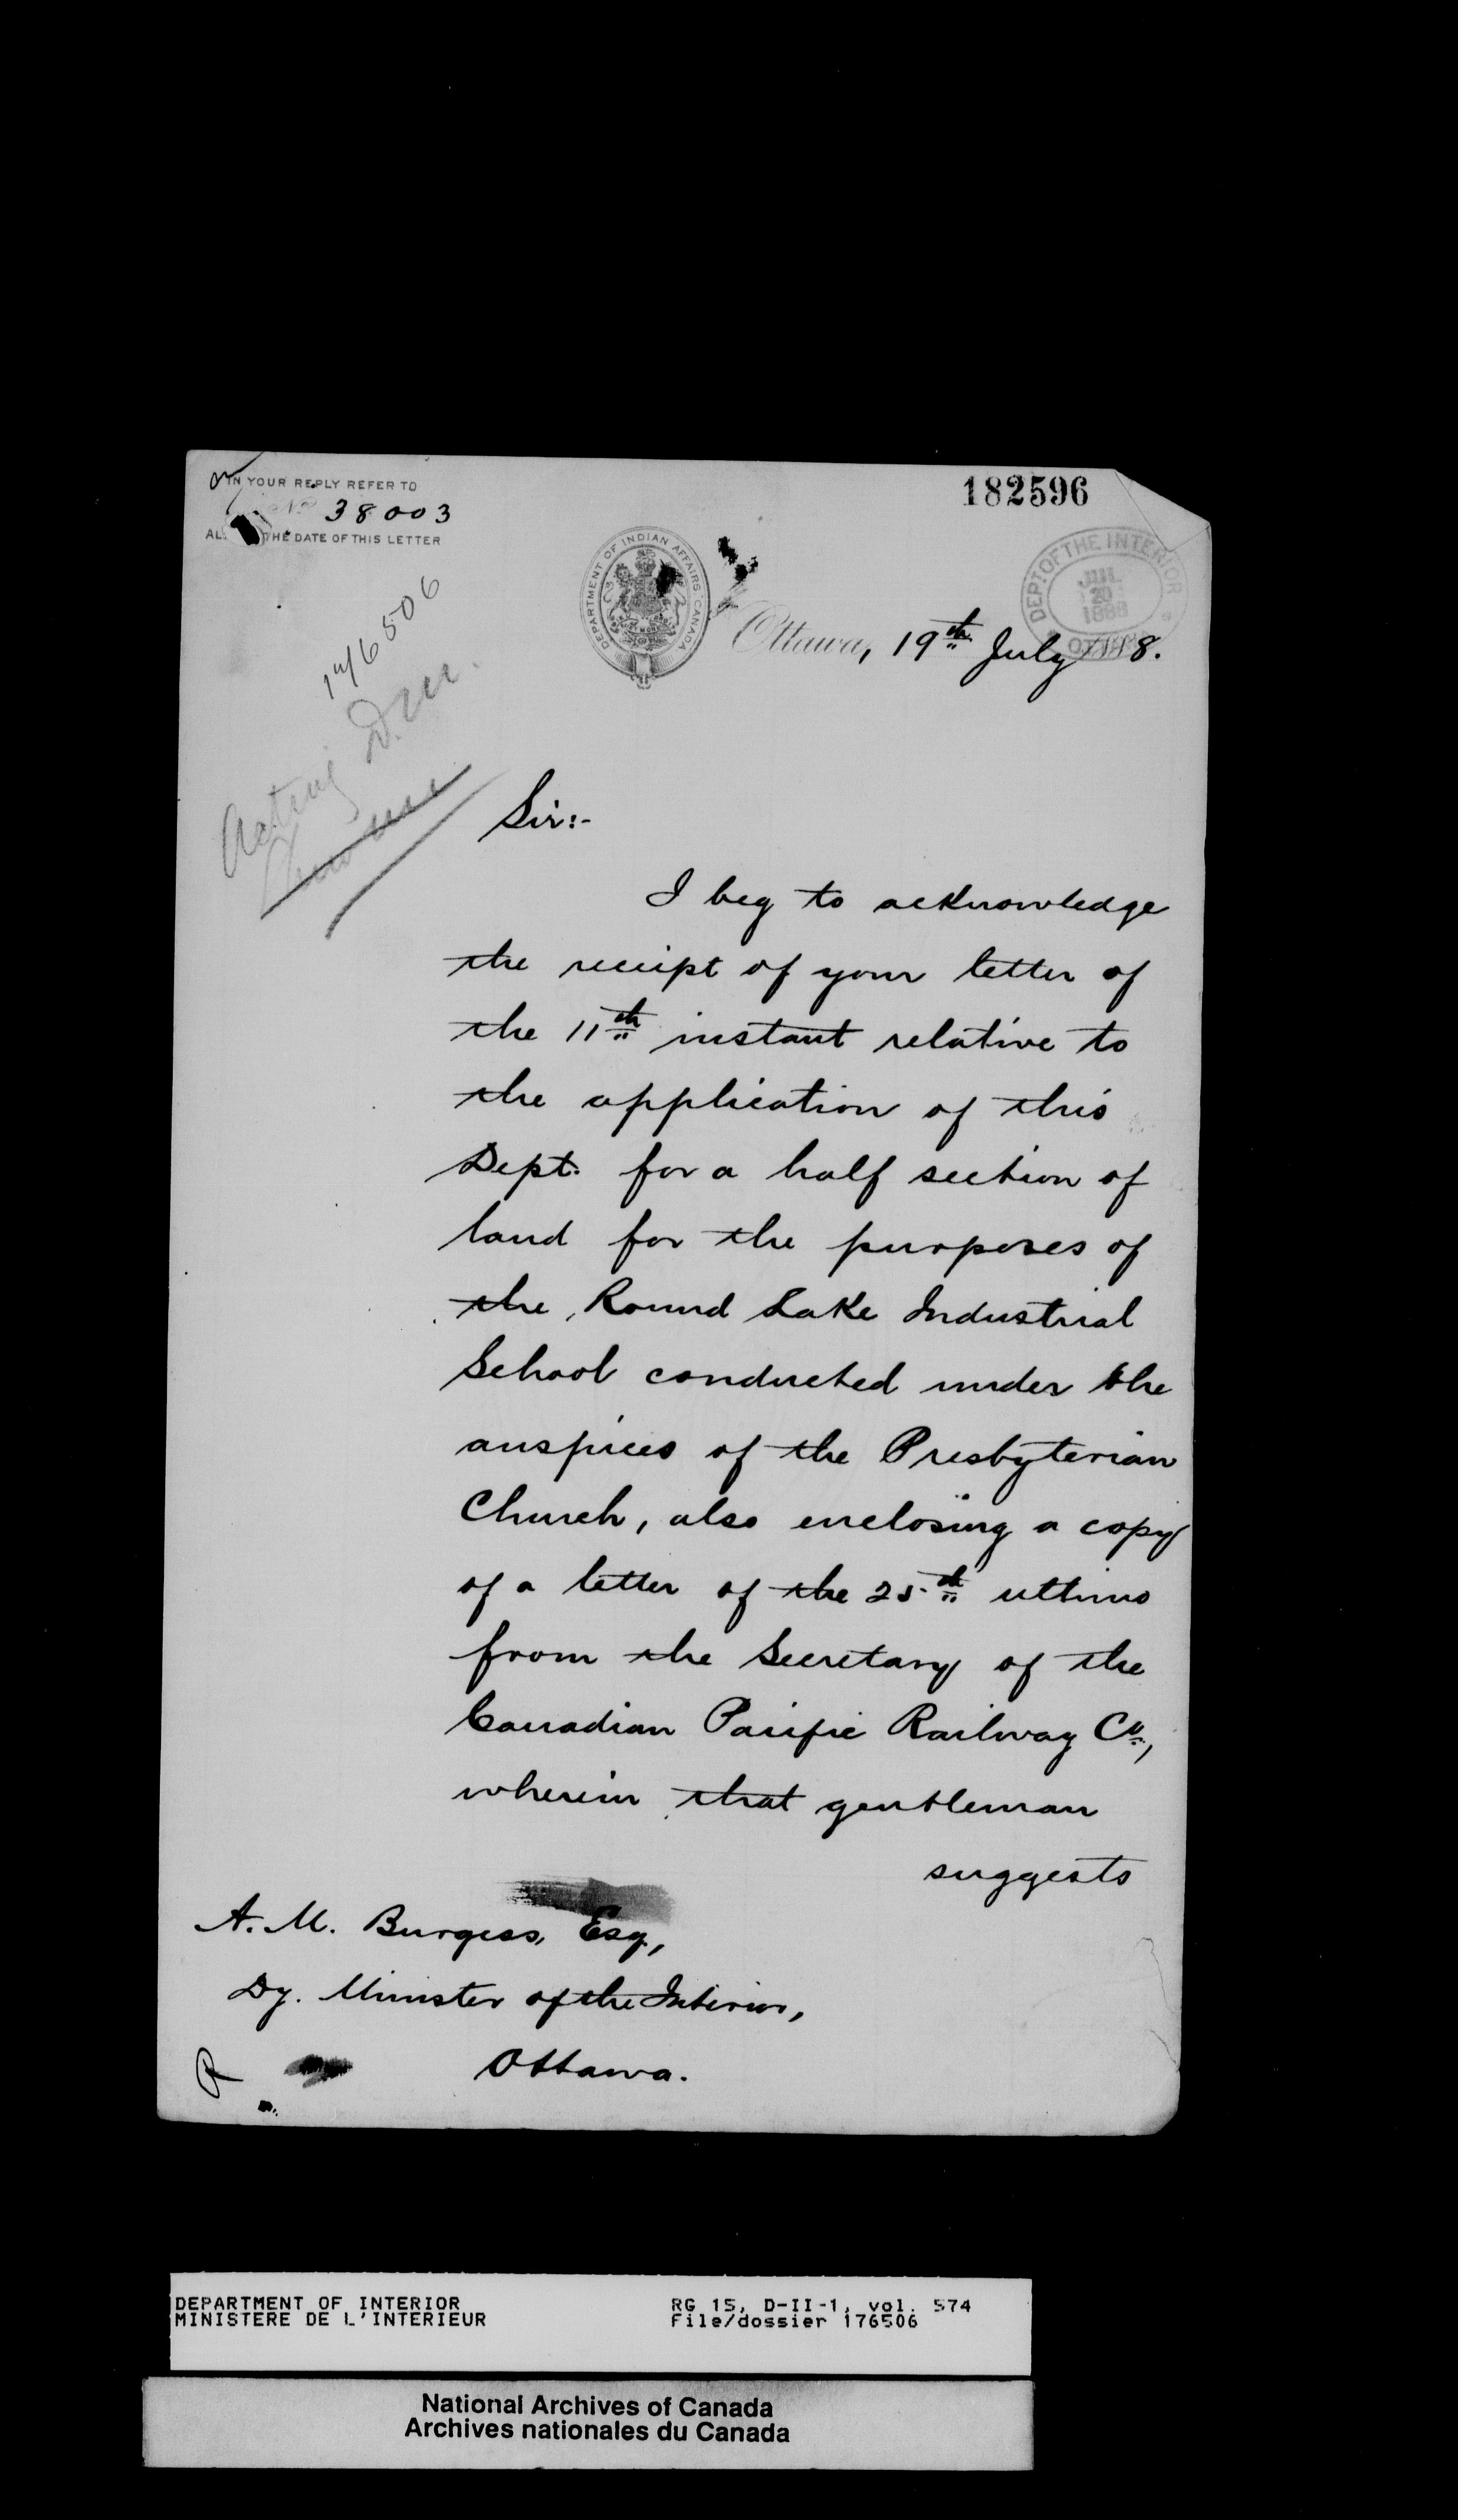 IN YOUR REPLY REFER TO
No 38003
THE DATE OF THIS LETTER
182596
DEPARTMENT OF INDIAN AFFAIRS CANADA
DEPT OF THE INTERIOR
JUL
20
1888
Ottawa, 19th July 1888.
176506
Acting D.M.
Sir:-
I beg to acknowledge
the receipt of your letter of
the 11th instant relative to
the application of this
Dept. for a half section of
land for the purposes of
the Round Lake Industrial
School conducted under the
auspices of the Presbyterian
Church, also enclosing a copy
of a letter of the 25th ultimo
from the Secretary of the
Canadian Pacific Railway Co.,
wherein that gentleman
suggests
A. M. Burgess, Esq.,
Dy. Minister of the Interior,
Ottawa.
DEPARTMENT OF INTERIOR
MINISTERE DE L'INTERIEUR
RG 15, D-II-1, vol. 574
File/dossier 176506
National Archives of Canada
Archives nationales du Canada